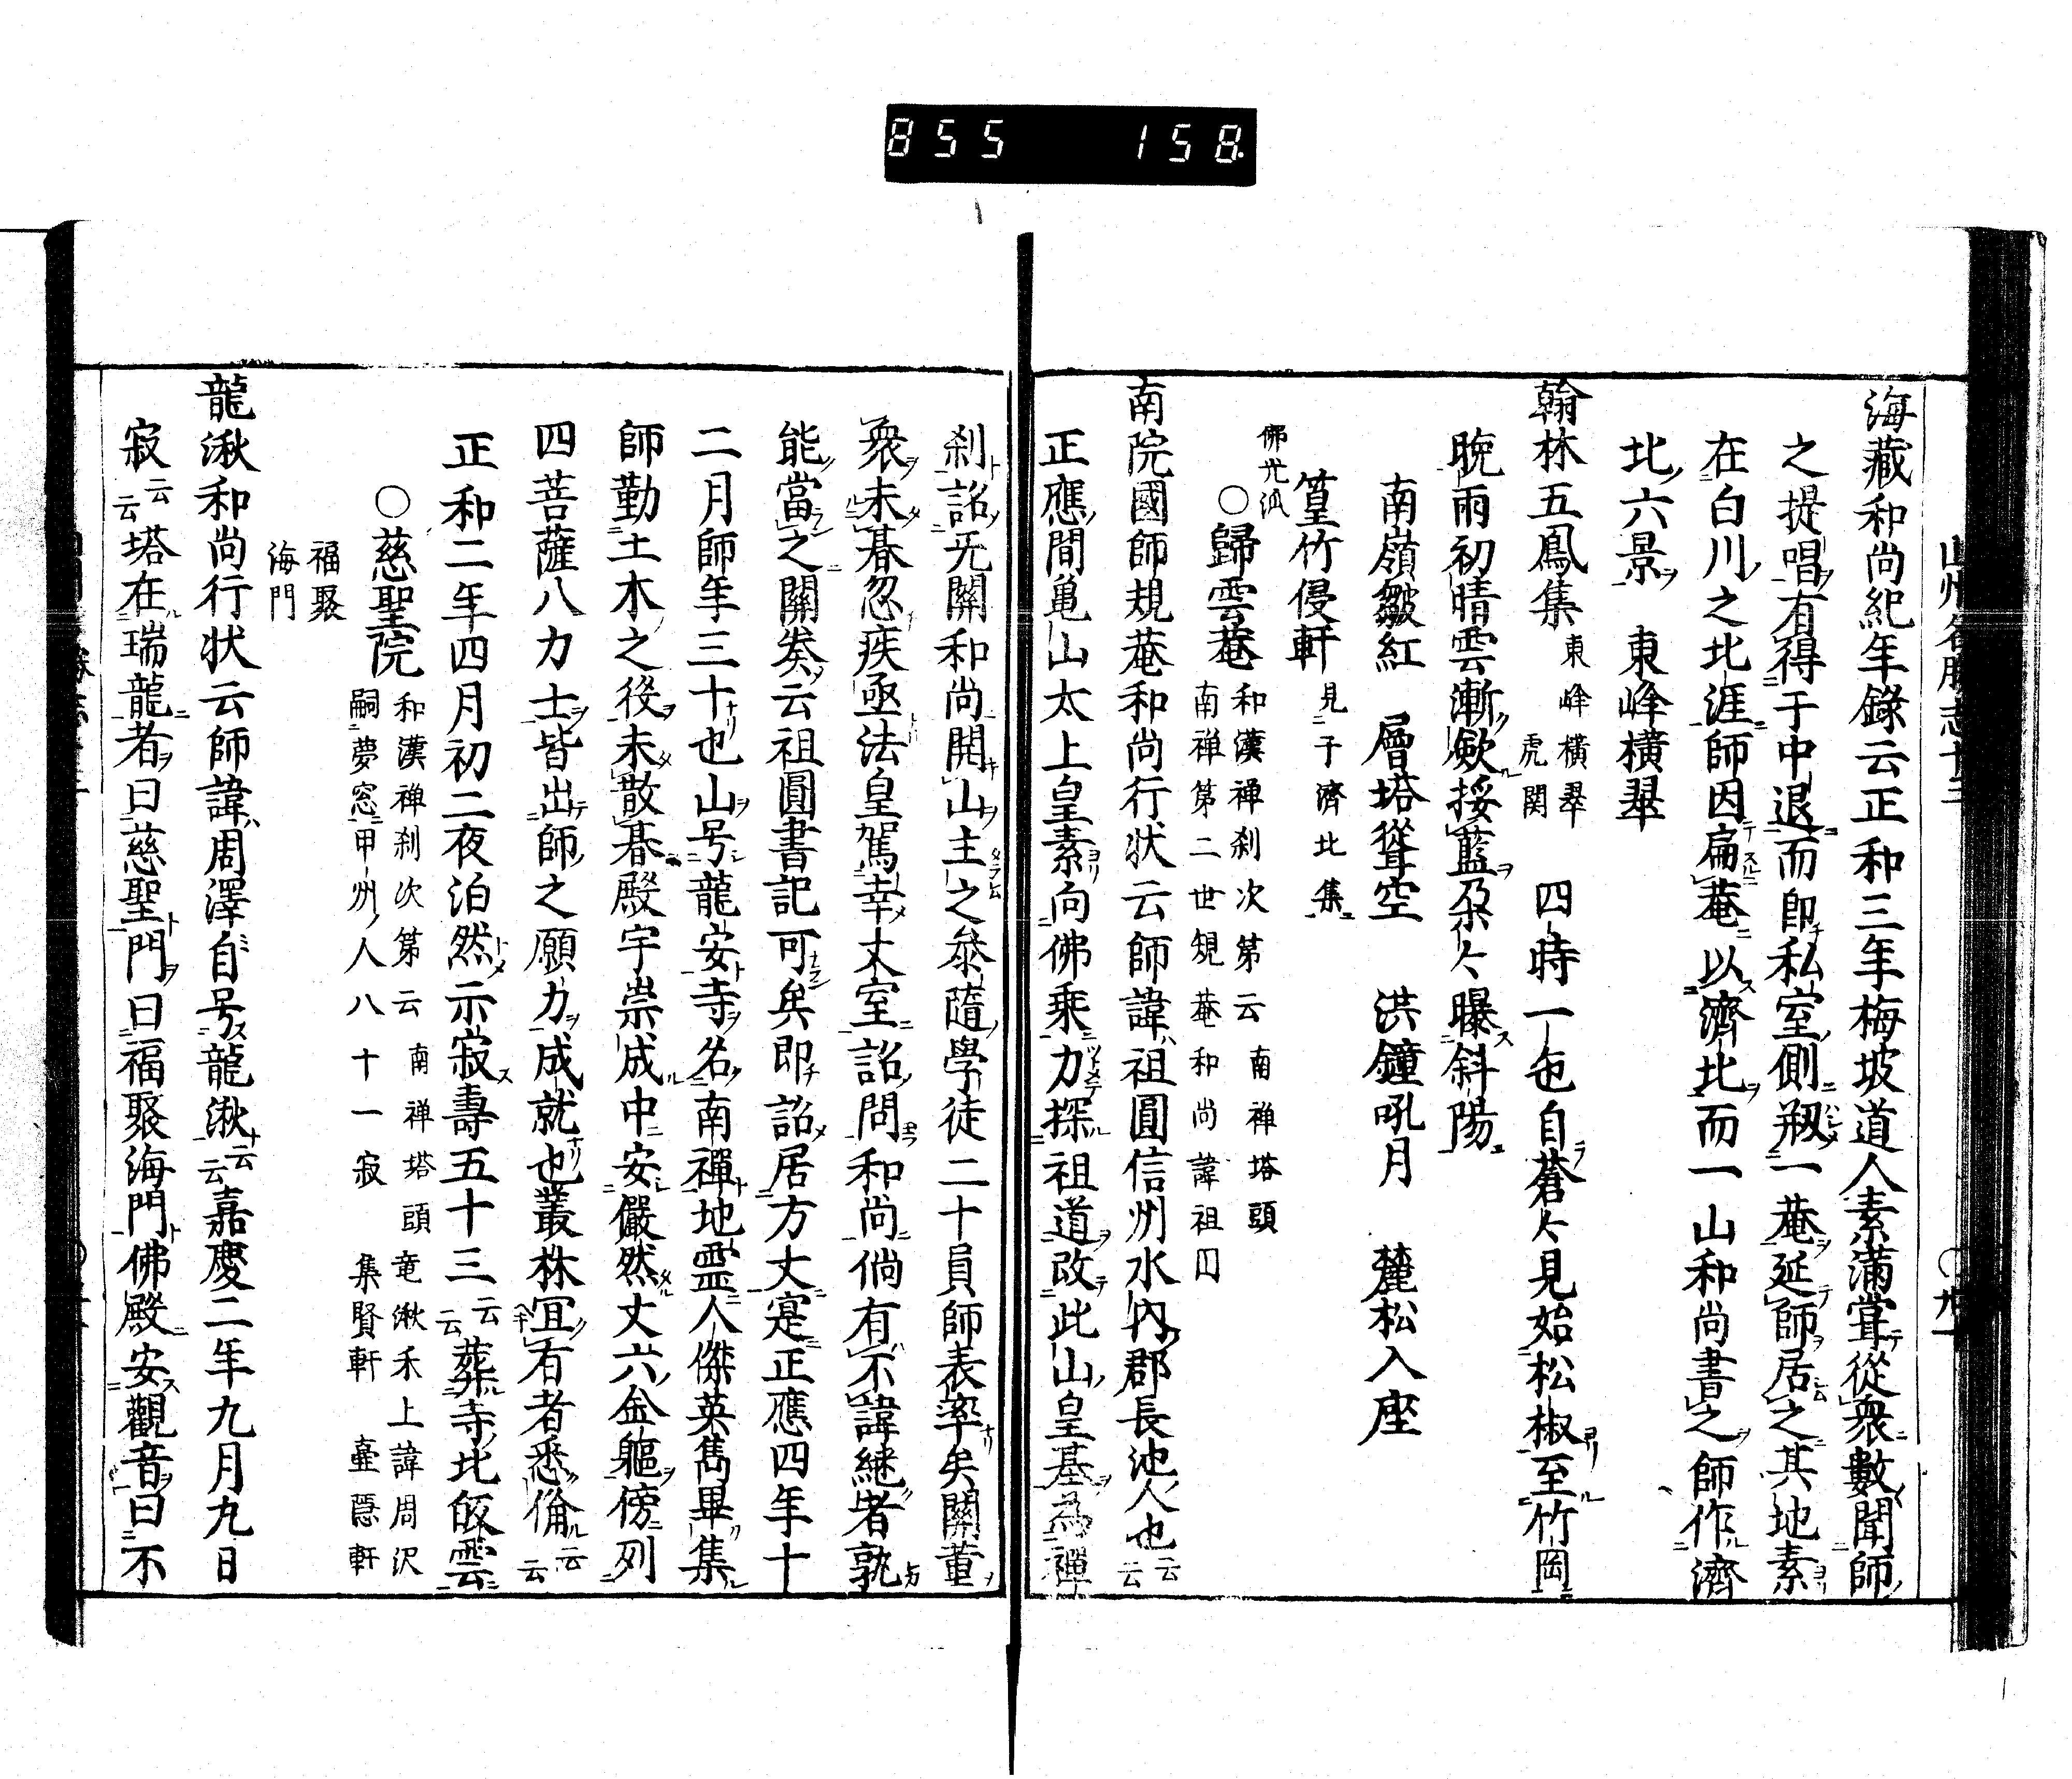 855 158
海藏和尚紀年錄云正和三年梅坡道人素滿嘗從衆數聞師
之提唱有得于中退而即私室側剏一菴延師居之其地素
在白川之北涯師因扁菴以濟北而一山和尚書之師作濟
北六景 東峰橫翠
翰林五鳳集 東峰橫翠 虎関 四時一色自蒼々見始松椒至竹岡
晚雨初晴雲漸歛挼藍朶々曝斜陽
南嶺皺紅 層塔聳空 洪鐘吼月 麓松入座
篁竹侵軒 見于濟北集
佛光派
○歸雲菴 和漢禅刹次第云南禅塔頭
南禅第二世規菴和尚諱祖円
南院國師規菴和尚行状云師諱祖圓信州水內郡長池人也云云
正應間亀山太上皇素向佛乗力探祖道改此山皇基為禪
刹詔无關和尚開山主之叅隨學徒二十員師表率矣關董
衆未朞忽疾亟法皇駕幸丈室詔問和尚倘有不諱継者孰
能當之關奏云祖圓書記可矣即詔居方丈寔正應四年十
二月師年三十也山号龍安寺名南禪地霊人傑英雋畢集
師勤土木之後未散朞殿宇崇成中安儼然丈六金軀傍列
四菩薩八力士皆出師之願力成就也叢林宜有者悉俻云云
正和二年四月初二夜泊然示寂壽五十三云云葬寺北皈雲
○慈聖院 和漢禅刹次第云南禅塔頭竜湫禾上諱周沢
嗣夢窓甲州人八十一寂 集賢軒 壷隠軒
福聚
海門
龍湫和尚行状云師諱周澤自号龍湫云云嘉慶二年九月九日
寂云云塔在瑞龍者曰慈聖門曰福聚海門佛殿安觀音曰不